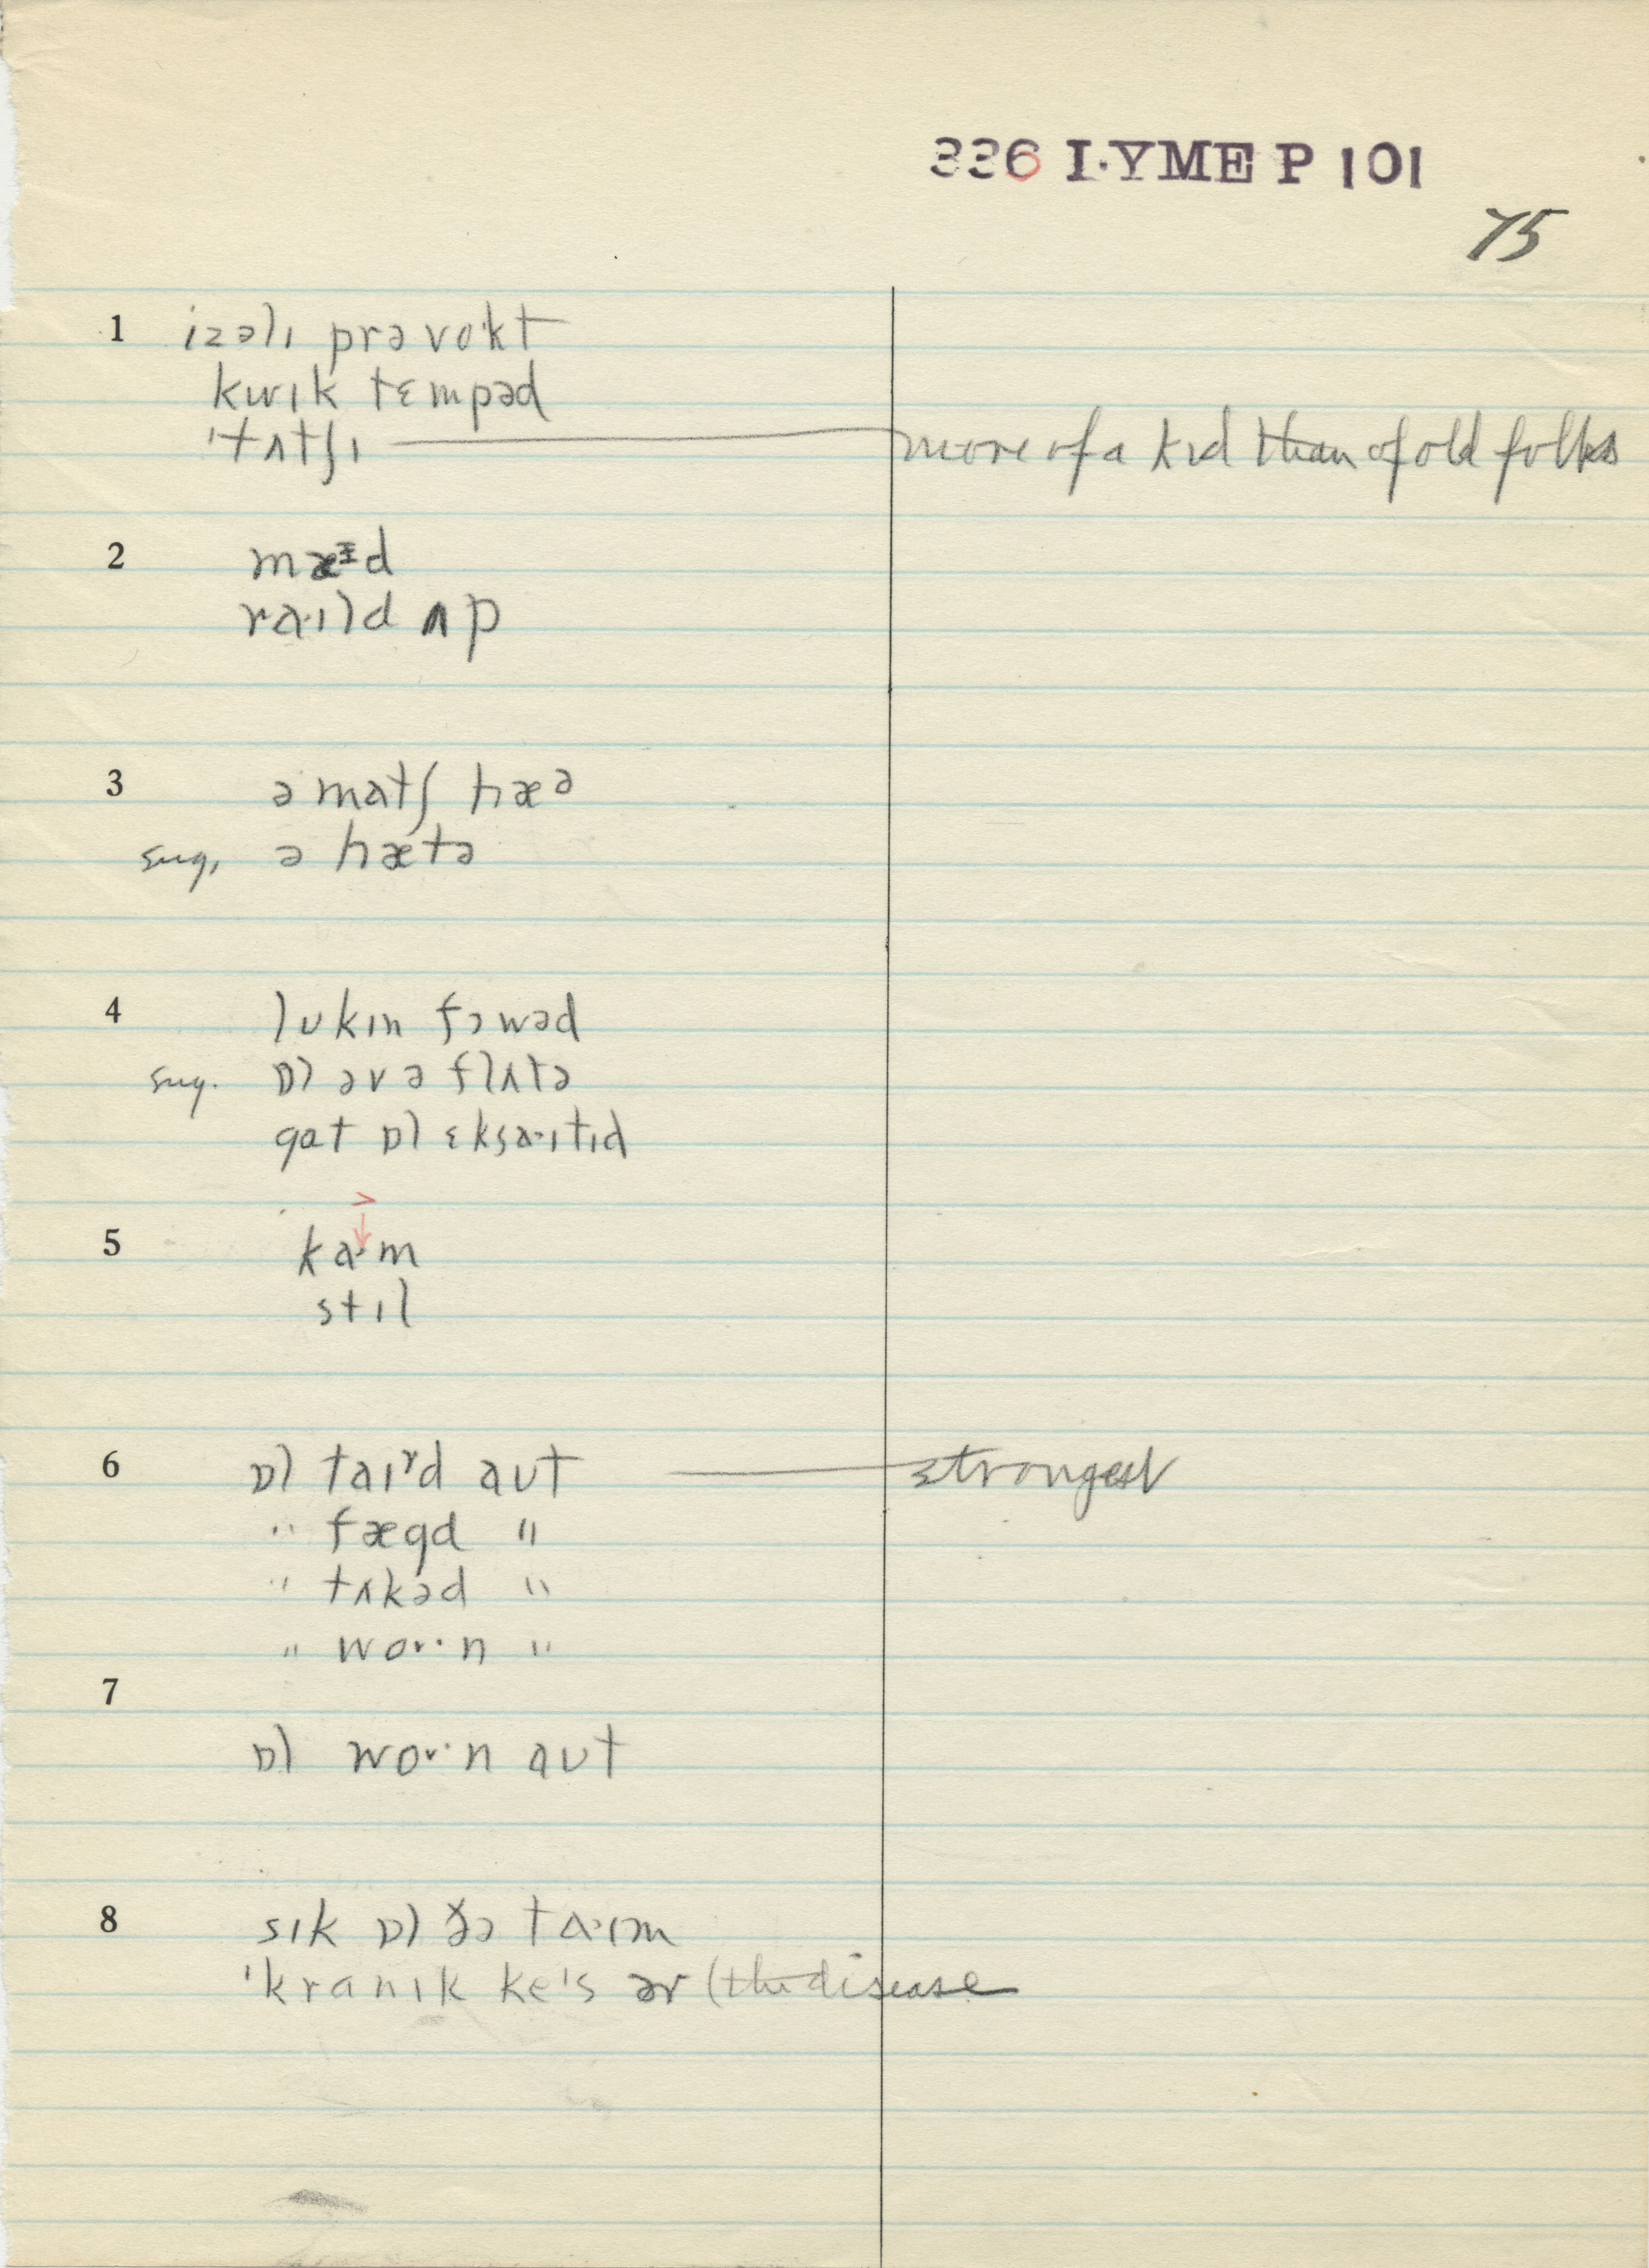 336 LYME P 101
75
1 izəlɪ prəvokt
kwɪk tɛmpəd
'tʌtʃɪ more of a kid than of old folks
2 mæᶦd
ra·ɪld ʌp
3 ə matʃ hæᵊ
sug. ə hætə
4 lʊkɪn fɔwəd
sug. ɒl əv ə flʌtə
gat ɒl ɛksa·ɪtɪd
5 ka·m
stɪl
6 ɒl taɪɚd aʊt strongest
" fægd "
" tʌkəd "
" woɚ·n "
7
ɒl woɚ·n aʊt
8 sɪk ɒl ðə ta·ɪm
'kranɪk ke's əv (the disease